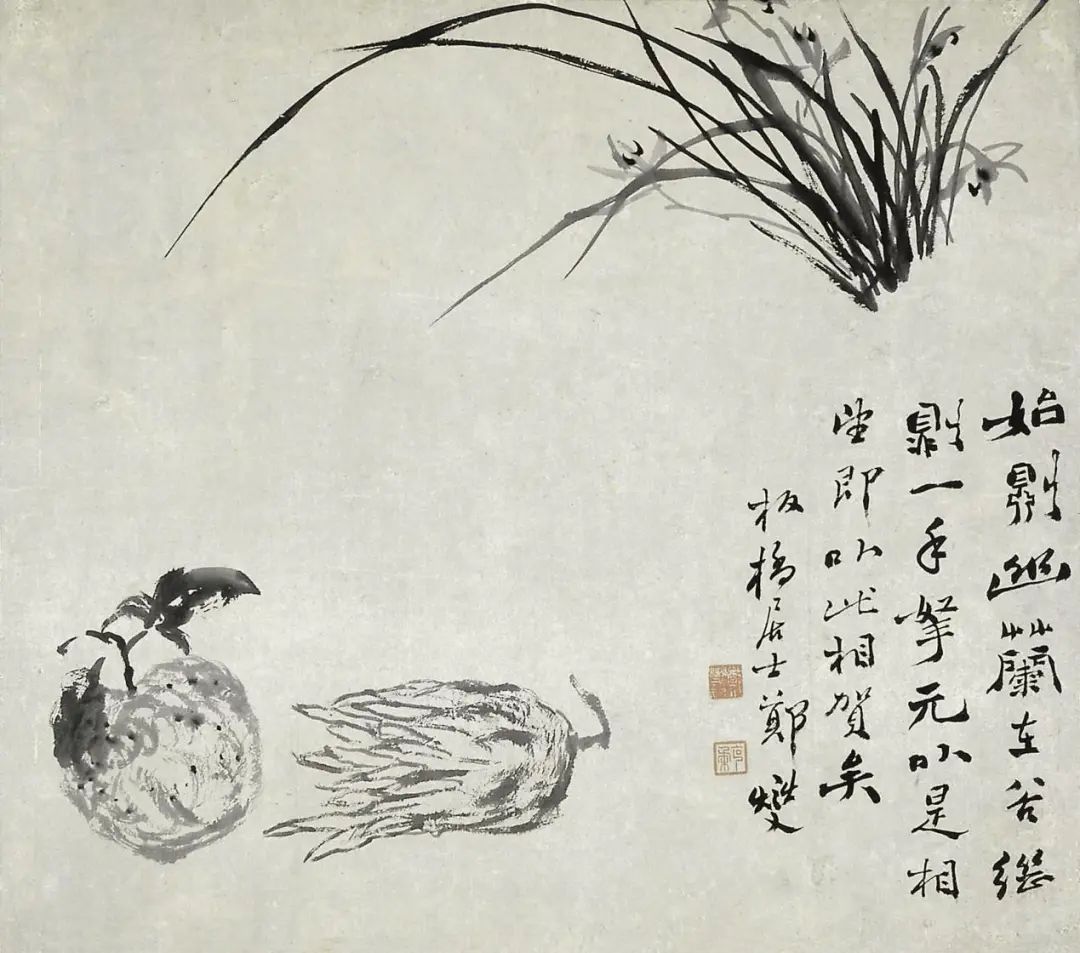 始則幽蘭在谷繼
則一手拏元以是相
望即以此相賀矣
板橋居士鄭燮